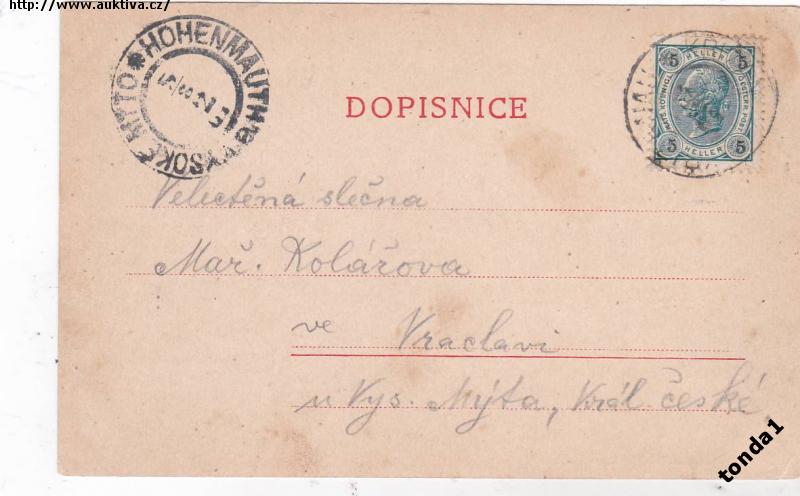 http://www.auktiva.cz/
HOHENMAUTH
VYSOKÉ MÝTO
DOPISNICE
5 HELLER 5
5 HELLER 5
Velectěná slečna
Mař. Kolářova
ve Vraclavi
u Vys. Mýta, Král. české
tonda1